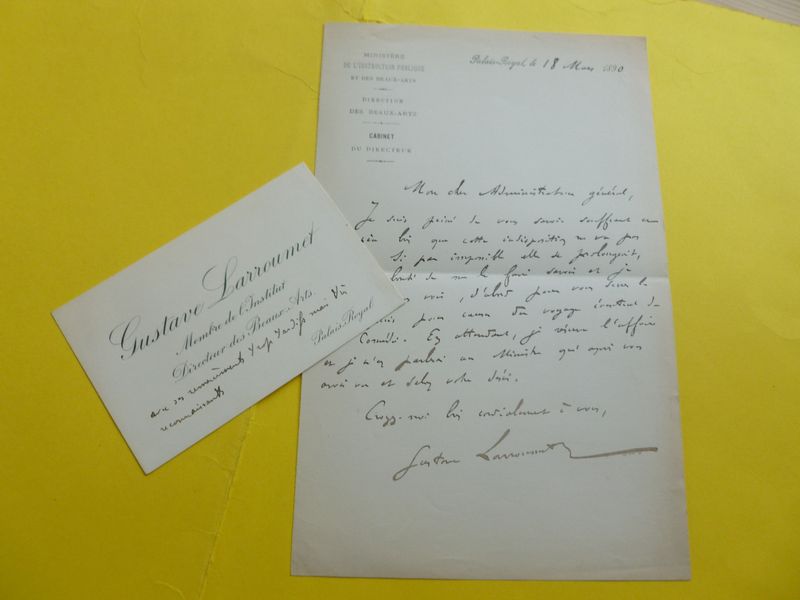 MINISTÈRE
DE L'INSTRUCTION PUBLIQUE
ET DES BEAUX-ARTS
DIRECTION
DES BEAUX-ARTS
CABINET
DU DIRECTEUR
Palais-Royal, le 18 Mars 1890
Mon cher Administrateur général,
Je suis peiné de vous savoir souffrant
bien que cette indisposition ne va pas
Si par impossible elle se prolongeait,
de me le faire savoir et je
voir, d'abord pour vous
pour causer du voyage éventuel de
Comédie. En attendant, je réserve l'affaire
et je n'en parlerai au Ministre qu'après vous
avoir vu et selon votre désir.
Croyez-moi bien cordialement à vous,
Gustave Larroumet
Gustave Larroumet
Membre de l'Institut
Directeur des Beaux-Arts.
Palais-Royal
avec ses remerciements tardifs mais très
reconnaissants